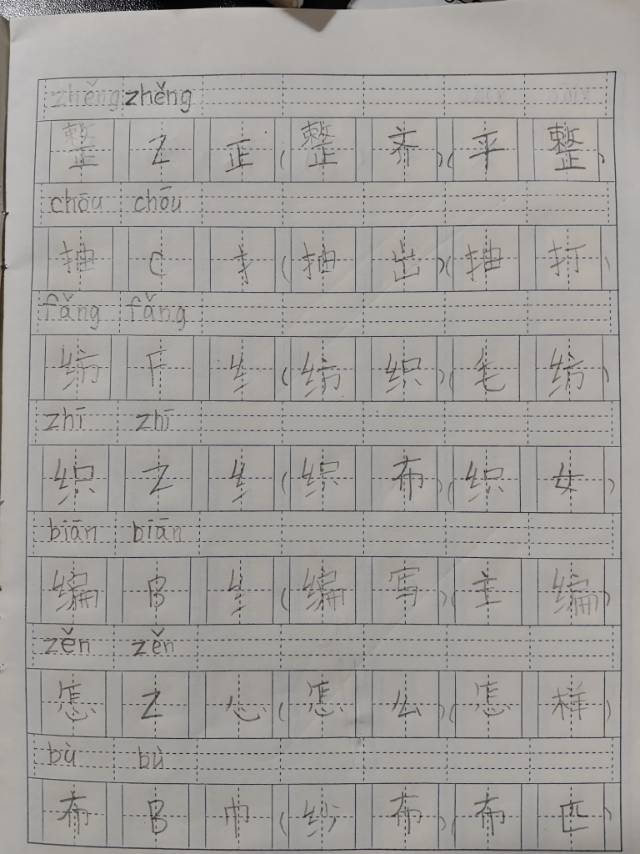 zhěng zhěng
整 Z 正 (整 齐)(平 整)
chōu chōu
抽 C 扌 (抽 出)(抽 打)
fǎng fǎng
纺 F 纟 (纺 织)(毛 纺)
zhī zhī
织 Z 纟 (织 布)(织 女)
biān biān
编 B 纟 (编 写)(主 编)
zěn zěn
怎 Z 心 (怎 么)(怎 样)
bù bù
布 B 巾 (纱 布)(布 匹)